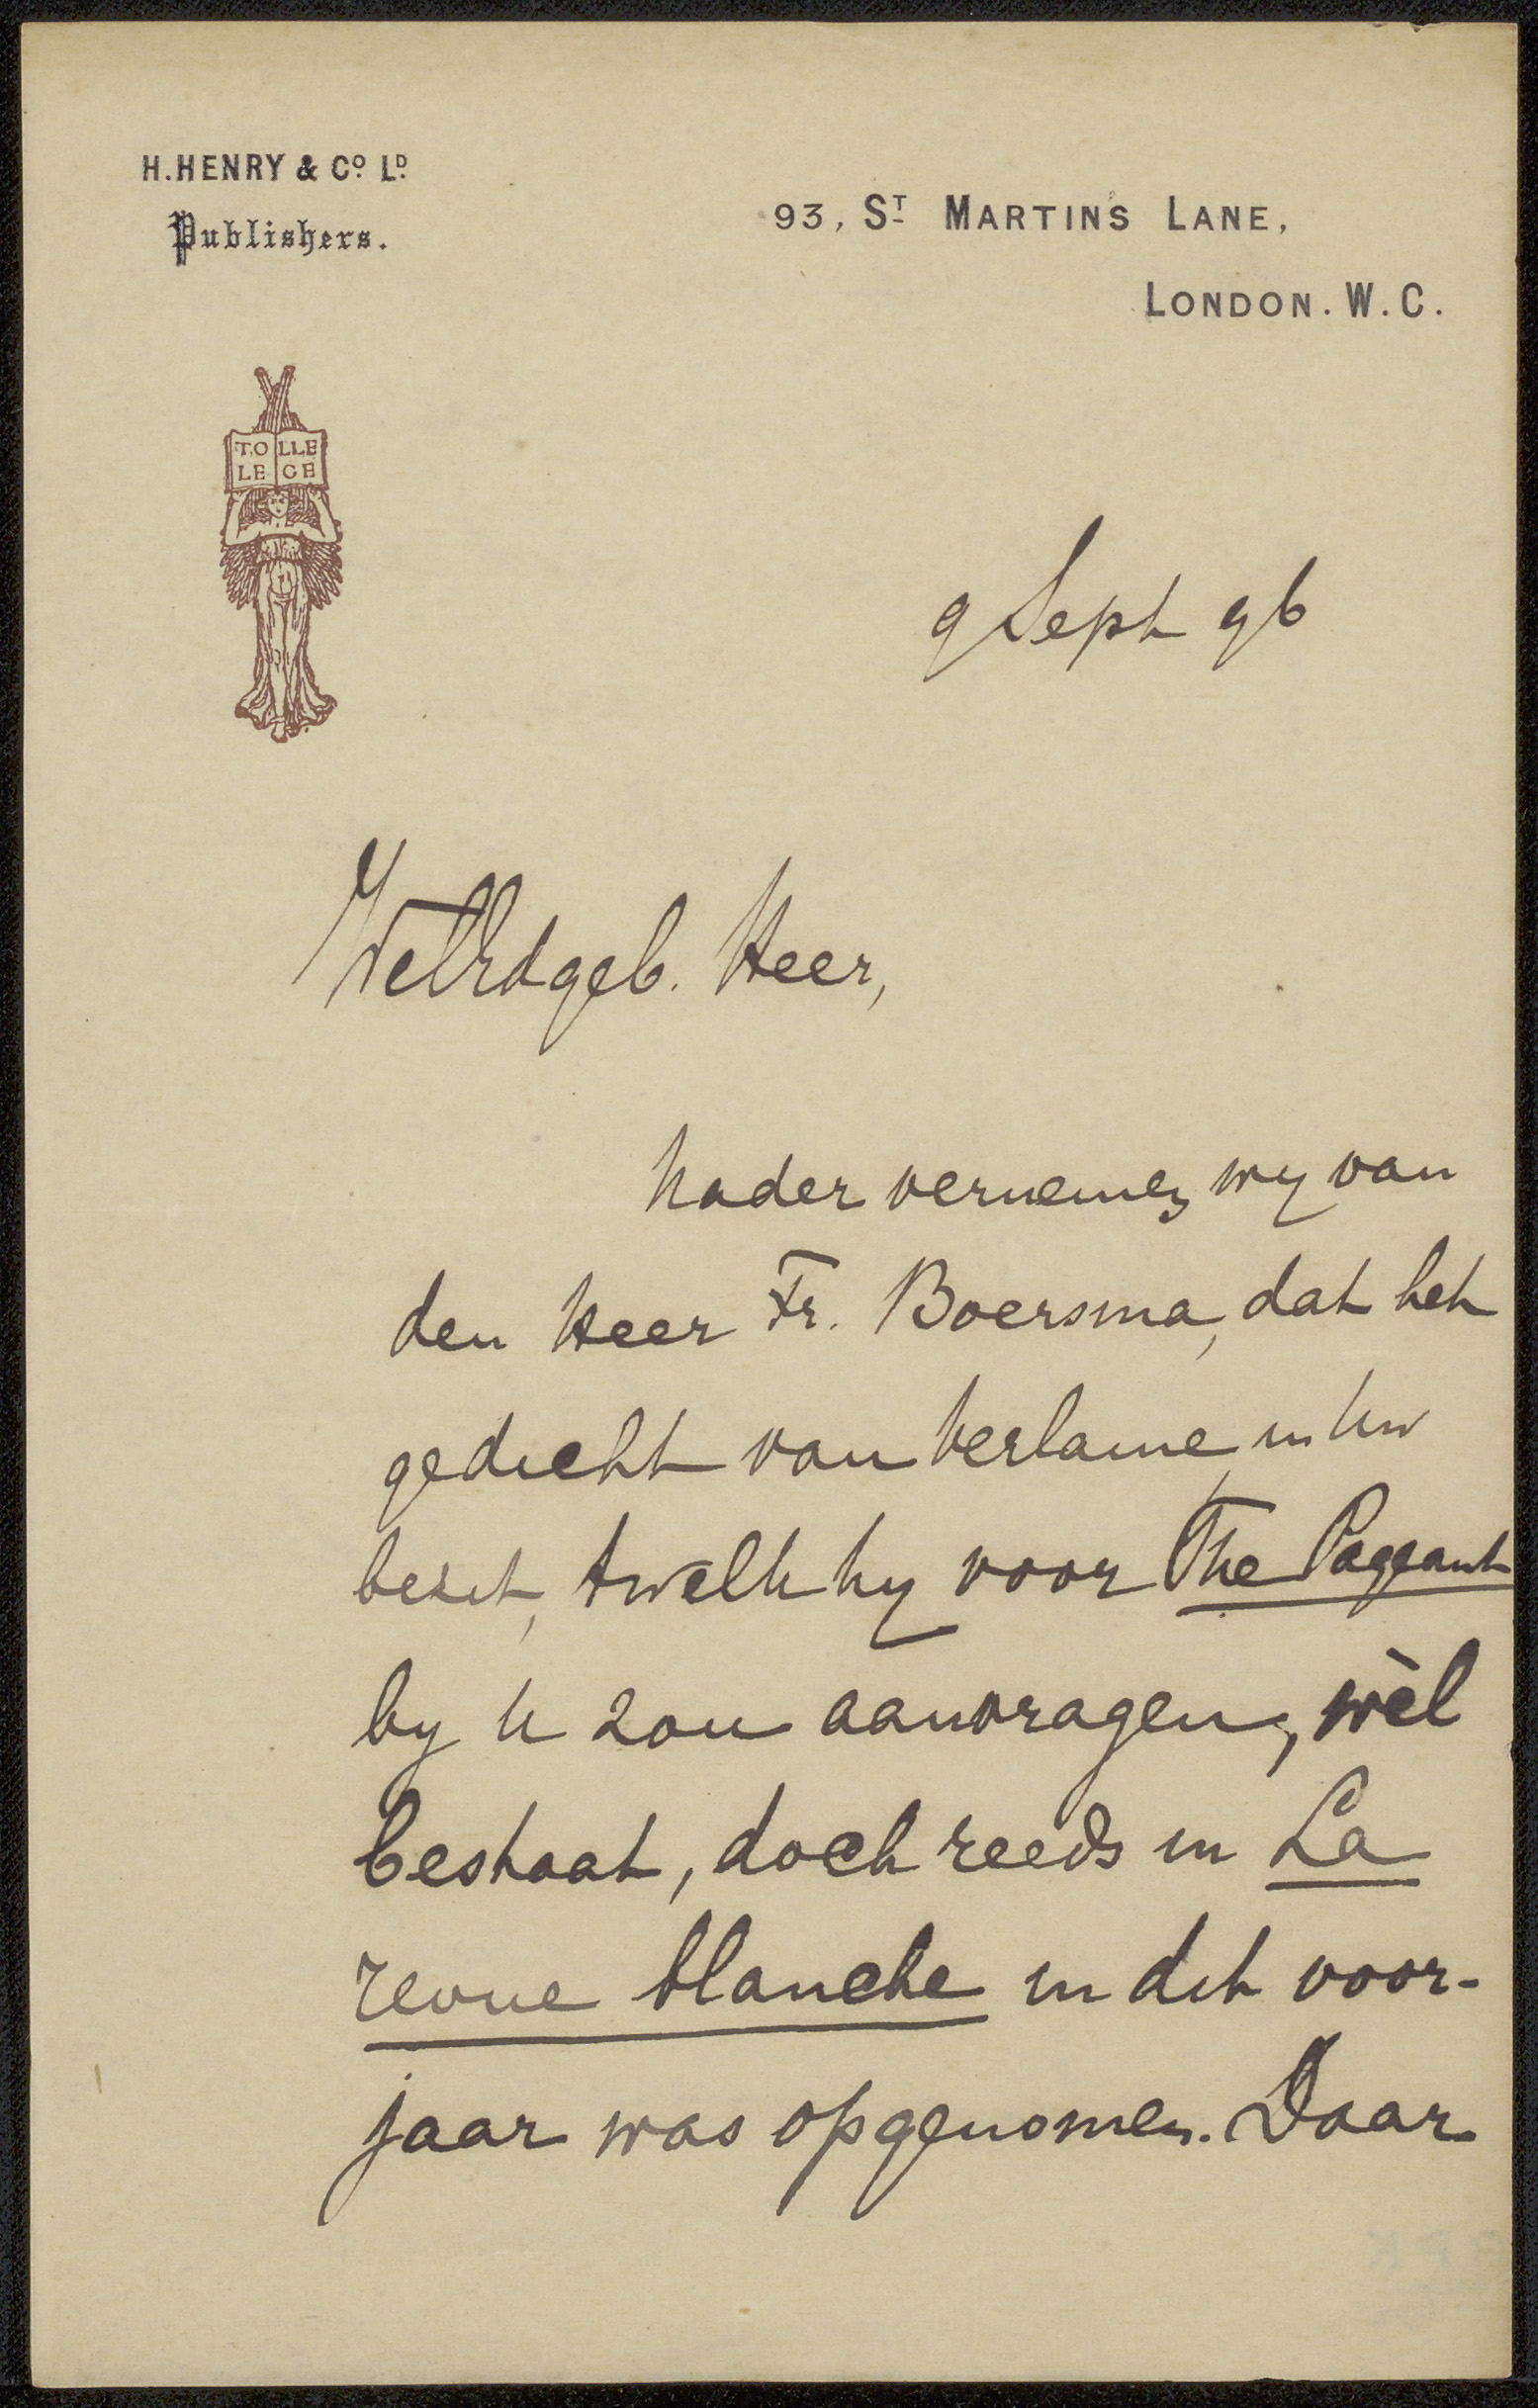 H. HENRY & Cº Lᴰ.
Publishers.
93, Sᵀ MARTINS LANE,
LONDON. W. C.
TOLLE
LEGE
9 Sept 96
WelEdgeb. Heer,
Nader vernemen wy van
den Heer Fr. Boersma, dat het
gedicht van Verlaine, in Uw
bezit, twelk hy voor The Pageant
by U zou aanvragen, wèl
bestaat, doch reeds in La
revue blanche in dit voor-
jaar was opgenomen. Daar